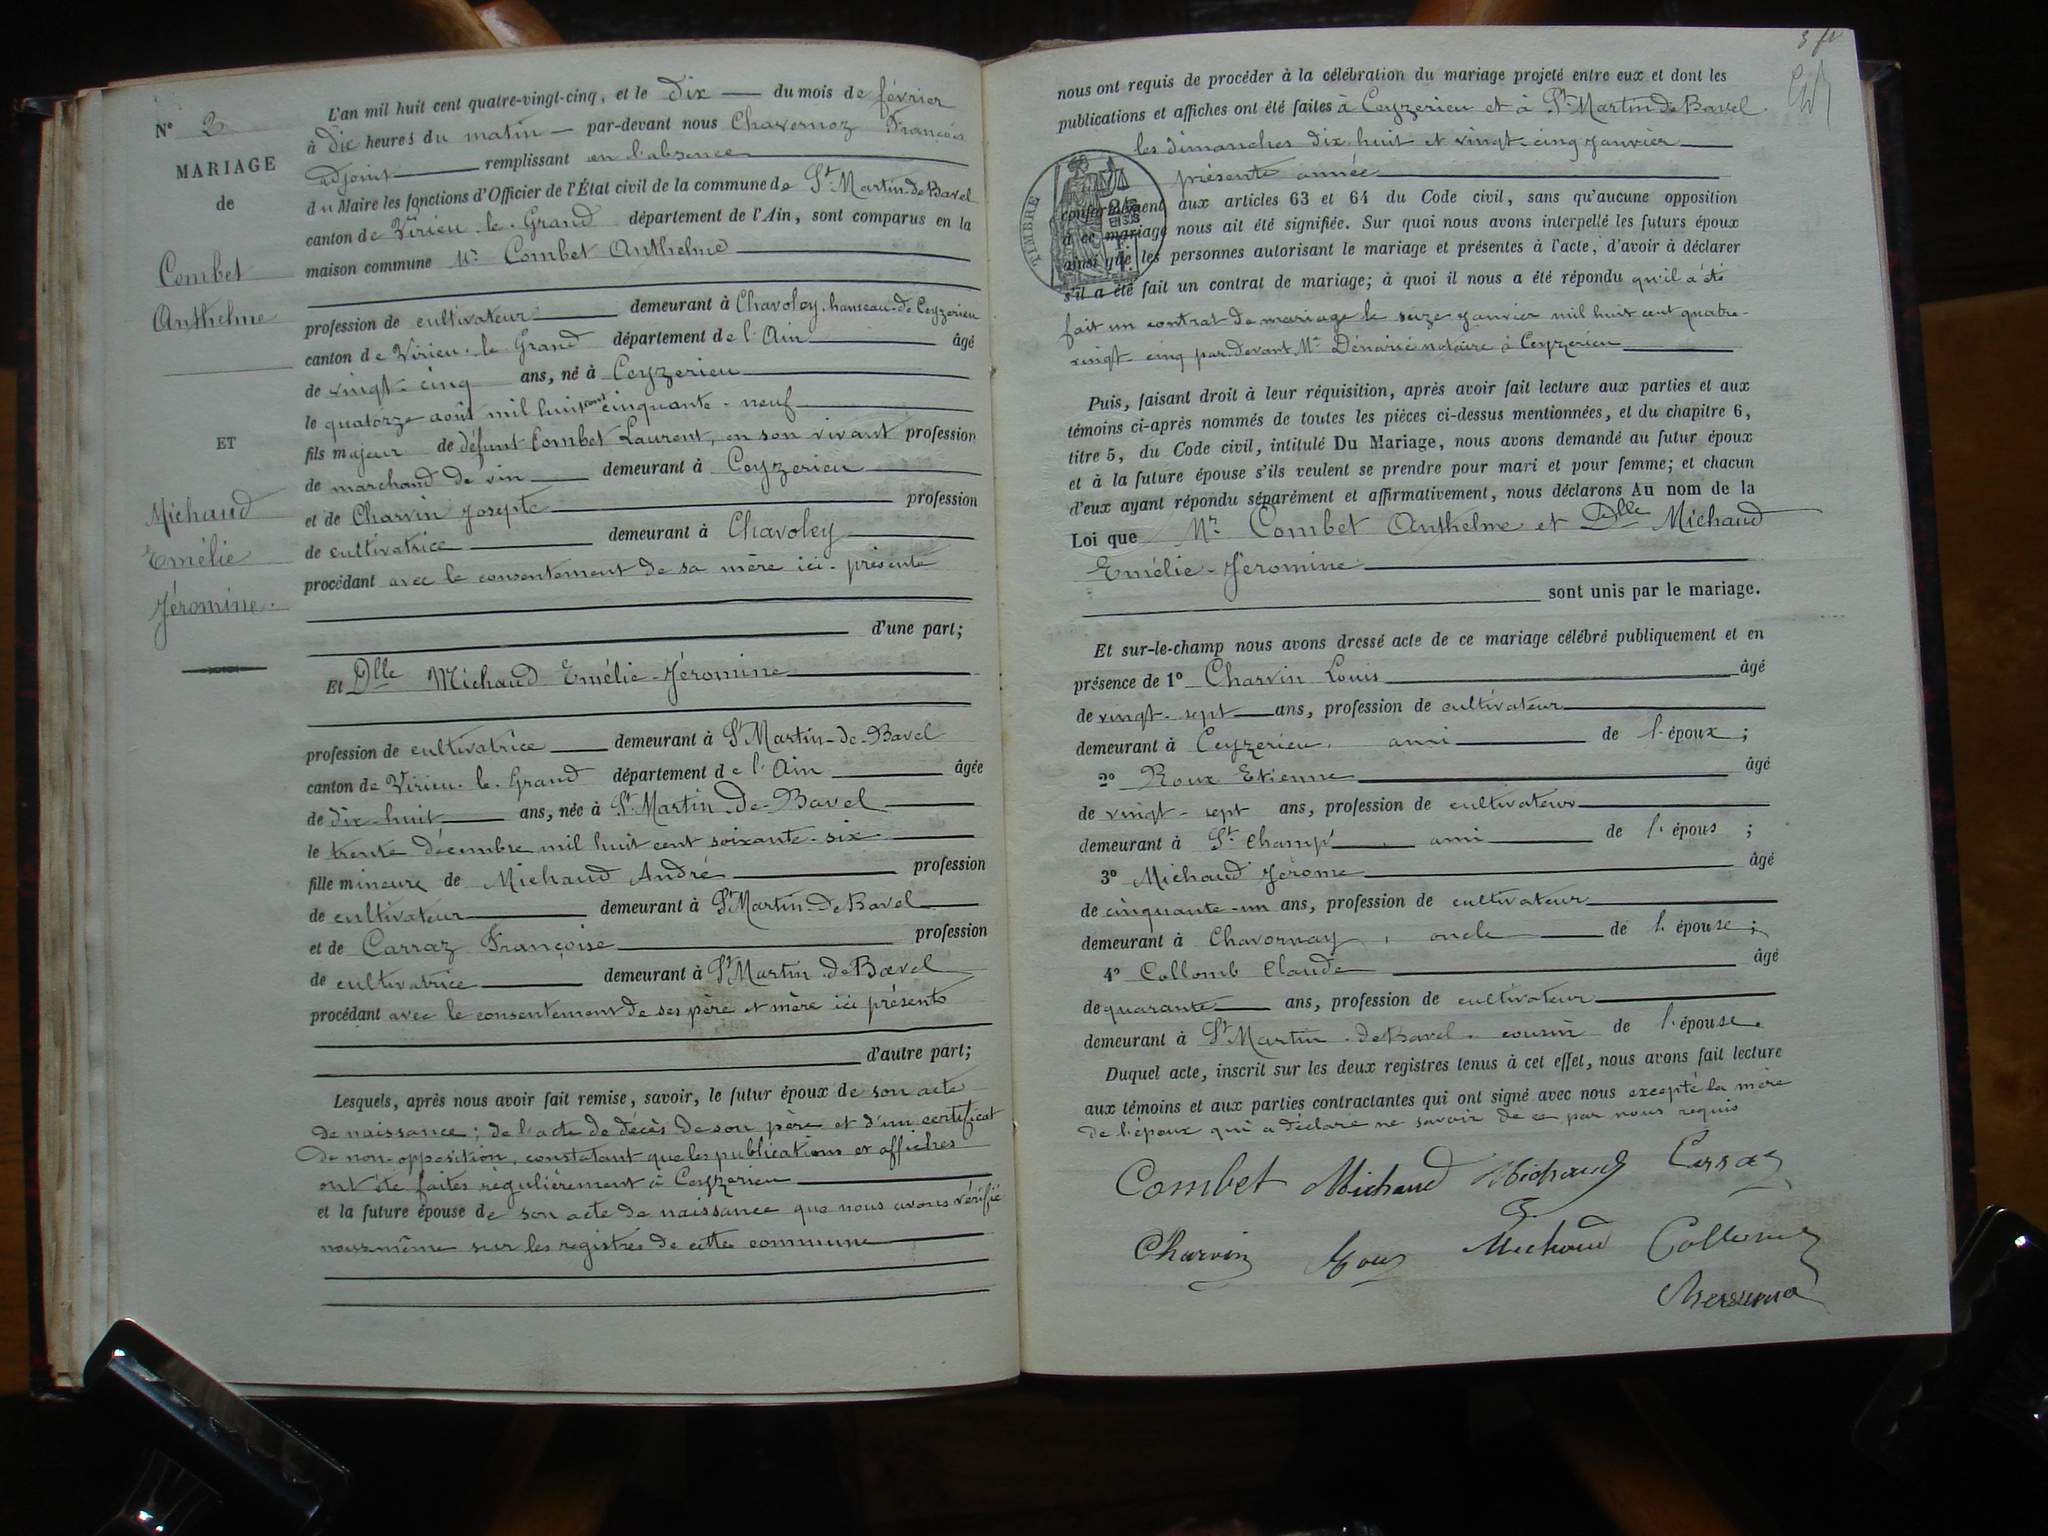 N° 2
MARIAGE
de
Combet
Anthelme
ET
Michaud
Emélie
Jéromine.
L'an mil huit cent quatre-vingt-cinq, et le dix du mois de février
à dix heures du matin par-devant nous Chavernoz François
adjoint remplissant en l'absence
du Maire les fonctions d'Officier de l'État civil de la commune de St Martin-de-Bavel
canton de Virieu-le-Grand département de l'Ain, sont comparus en la
maison commune Mr Combet Anthelme
profession de cultivateur demeurant à Chavoley, hameau-de-Ceyzerieu
canton de Virieu-le-Grand département de l'Ain âgé
de vingt-cinq ans, né à Ceyzerieu
le quatorze août mil huit cent cinquante-neuf
fils majeur de défunt Combet Laurent, en son vivant profession
de marchand de vin demeurant à Ceyzerieu
et de Charvin Josepte profession
de cultivatrice demeurant à Chavoley
procédant avec le consentement de sa mère ici-présente
d'une part;
Et Dlle Michaud Emélie-Jéromine
profession de cultivatrice demeurant à St Martin-de-Bavel
canton de Virieu-le-Grand département de l'Ain âgée
de dix huit ans, née à St Martin-de-Bavel
le trente décembre mil huit cent soixante-six
fille mineure de Michaud André profession
de cultivateur demeurant à St Martin-de Bavel
et de Carraz Françoise profession
de cultivatrice demeurant à St Martin-de Bavel
procédant avec le consentement de ses père et mère ici présents
d'autre part;
Lesquels, après nous avoir fait remise, savoir, le futur époux de son acte
de naissance; de l'acte de décès de son père et d'un certificat
de non-opposition, constatant que les publications et affiches
ont été faites régulièrement à Ceyzerieu
et la future épouse de son acte de naissance que nous avons vérifié
nous même sur les registres de cette commune
3 fr
nous ont requis de procéder à la célébration du mariage projeté entre eux et dont les
publications et affiches ont été faites à Ceyzerieu et à St Martin de Bavel.
les dimanches dix-huit et vingt-cinq janvier
présente année
TIMBRE
conformément aux articles 63 et 64 du Code civil, sans qu'aucune opposition
à ce mariage nous ait été signifiée. Sur quoi nous avons interpellé les futurs époux
ainsi que les personnes autorisant le mariage et présentes à l'acte, d'avoir à déclarer
s'il a été fait un contrat de mariage; à quoi il nous a été répondu qu'il a été
fait un contrat de mariage le seize janvier mil huit cent quatre-
vingt-cinq par-devant Me Dénarié notaire à Ceyzerieu
Puis, faisant droit à leur réquisition, après avoir fait lecture aux parties et aux
témoins ci-après nommés de toutes les pièces ci-dessus mentionnées, et du chapitre 6,
titre 5, du Code civil, intitulé Du Mariage, nous avons demandé au futur époux
et à la future épouse s'ils veulent se prendre pour mari et pour femme; et chacun
d'eux ayant répondu séparément et affirmativement, nous déclarons Au nom de la
Loi que Mr Combet Anthelme et Dlle Michaud
Emélie-Jéromine
sont unis par le mariage.
Et sur-le-champ nous avons dressé acte de ce mariage célébré publiquement et en
présence de 1° Charvin Louis âgé
de vingt-sept ans, profession de cultivateur
demeurant à Ceyzerieu, ami de l'époux;
2° Roux Etienne âgé
de vingt-sept ans, profession de cultivateur
demeurant à St Champ, ami de l'épous;
3° Michaud Jérome âgé
de cinquante-un ans, profession de cultivateur
demeurant à Chavornay, oncle de l'épouse;
4° Collomb Claude âgé
de quarante ans, profession de cultivateur
demeurant à St Martin-de Bavel. cousin de l'épouse.
Duquel acte, inscrit sur les deux registres tenus à cet effet, nous avons fait lecture
aux témoins et aux parties contractantes qui ont signé avec nous excepté la mère
de l'époux qui a déclaré ne savoir de ce par nous requis
Combet Michaud Michaud
Charvin Roux Michaud Collomb